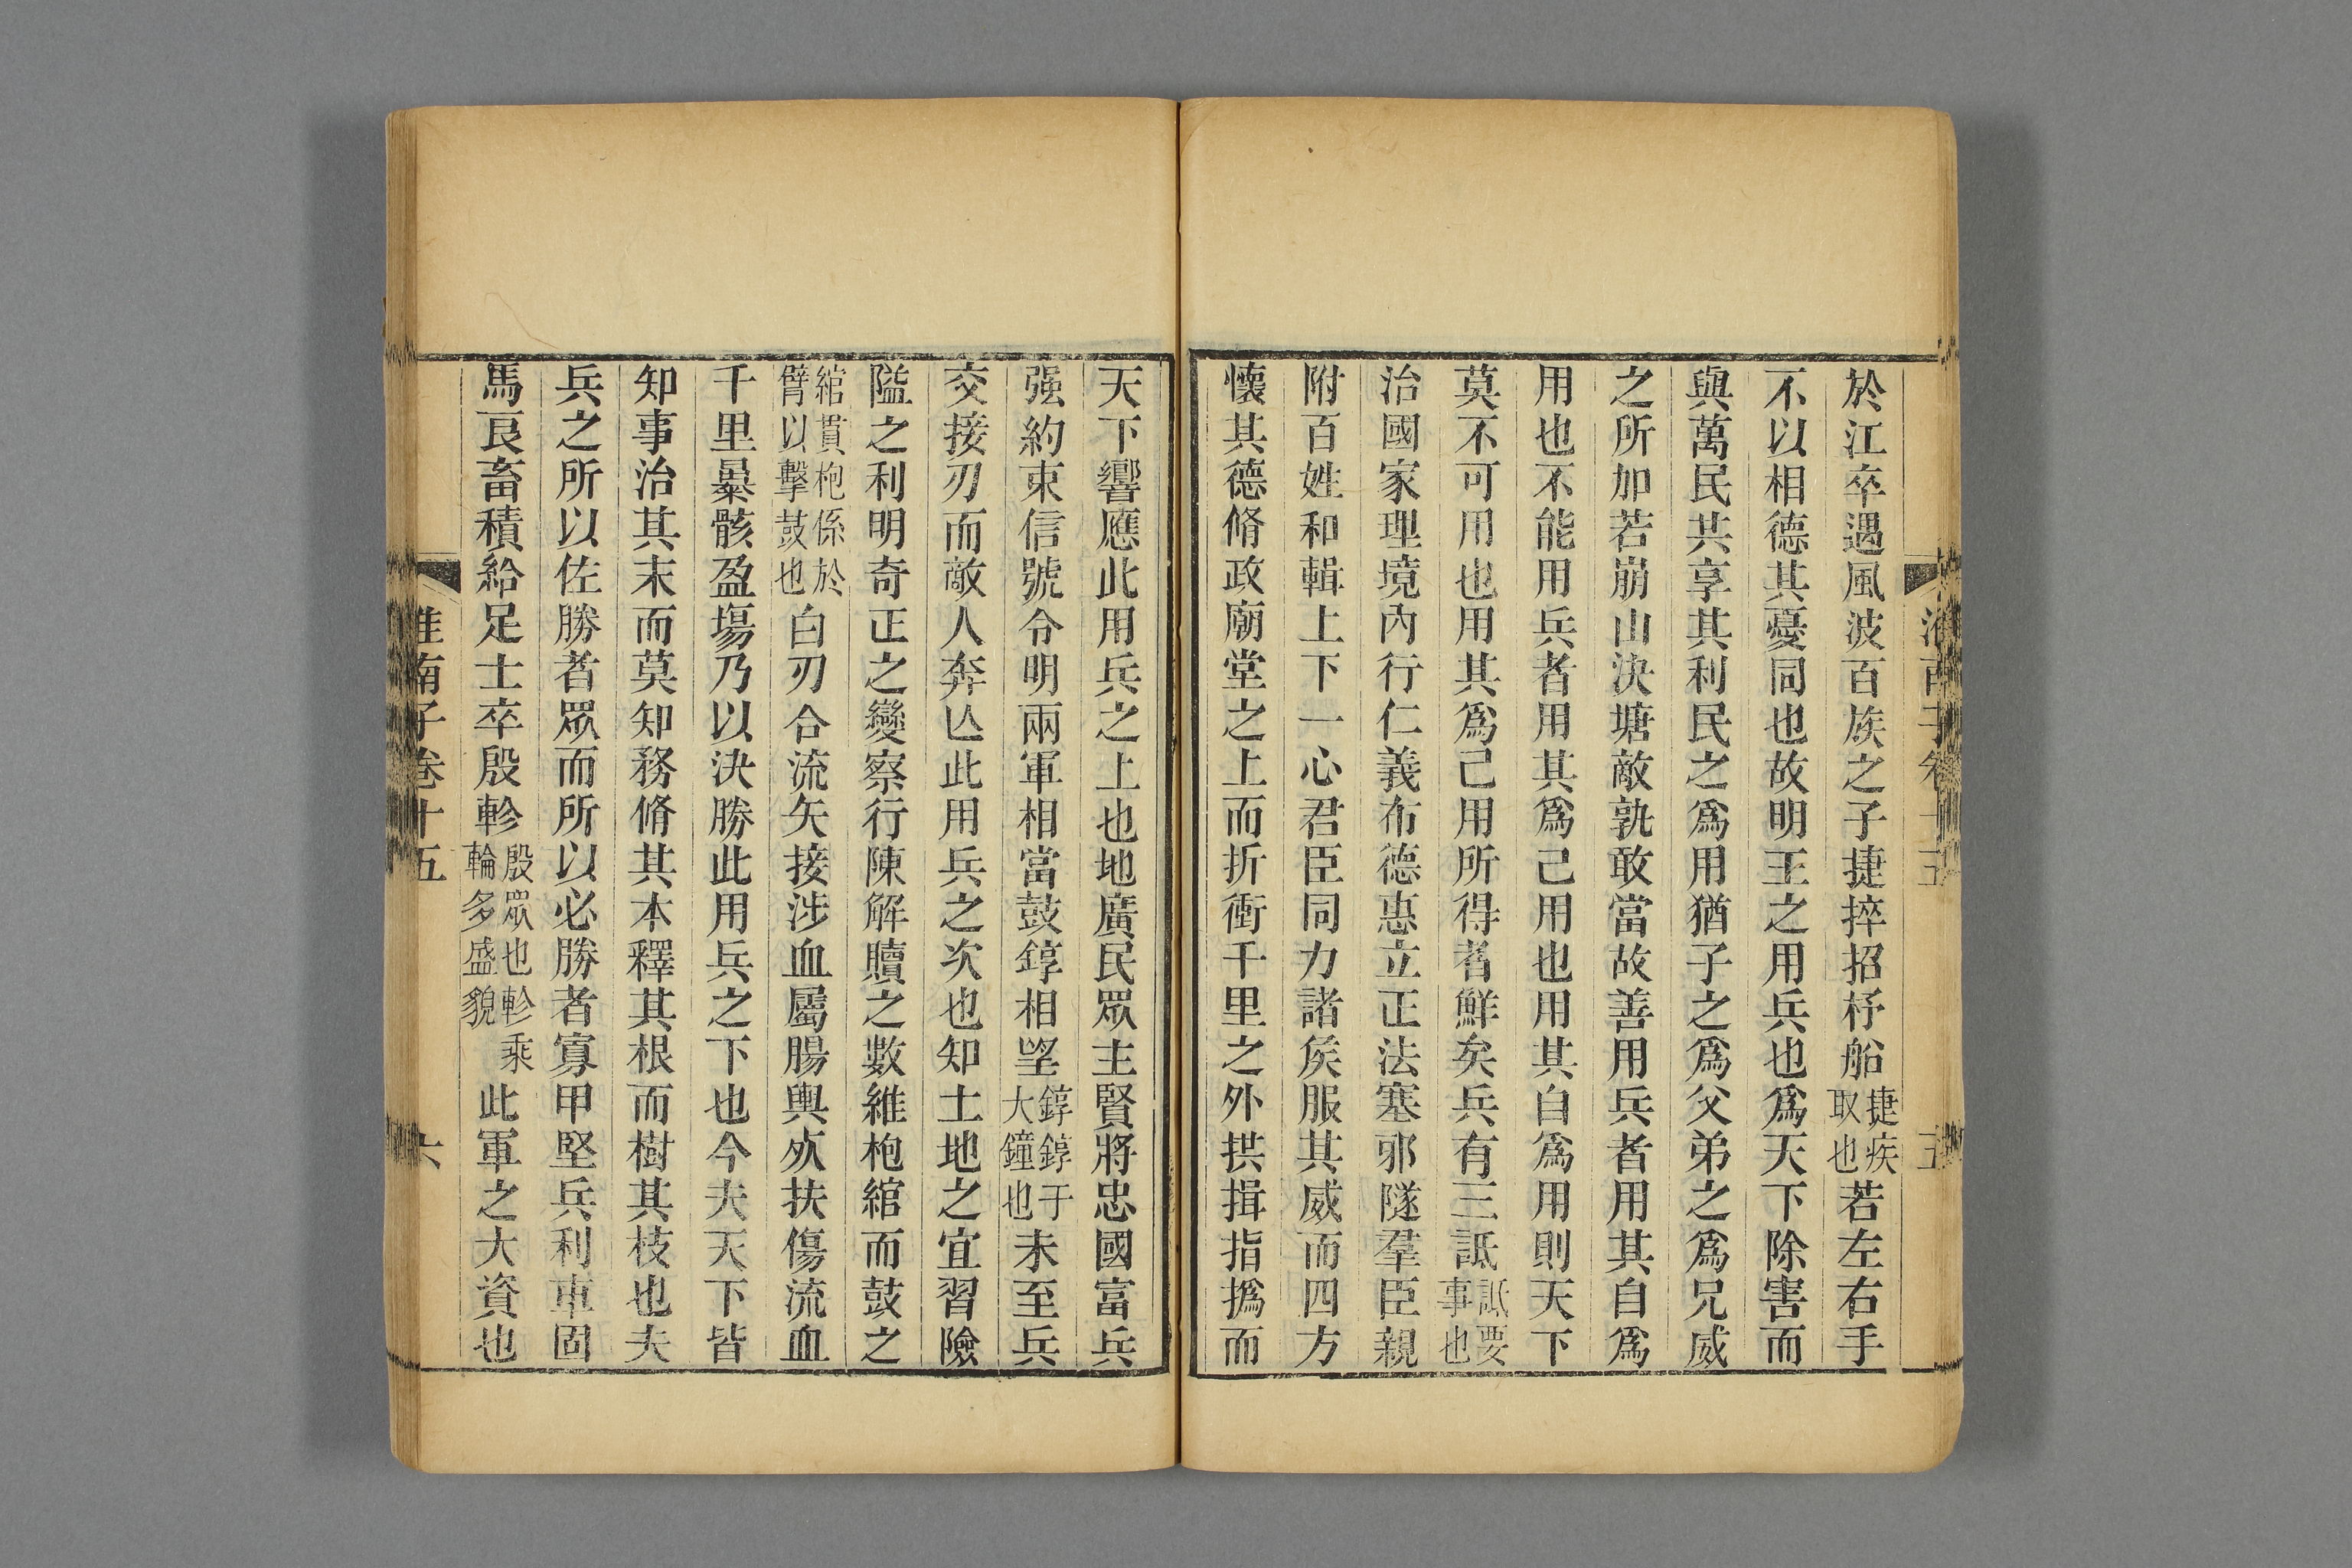 於江卒遇風波百族之子捷捽招杼船捷疾取也若左右手
不以相德其憂同也故明王之用兵也爲天下除害而
與萬民共享其利民之爲用猶子之爲父弟之爲兄威
之所加若崩山決塘敵孰敢當故善用兵者用其自爲
用也不能用兵者用其爲己用也用其自爲用則天下
莫不可用也用其爲己用所得者鮮矣兵有三詆詆要事也
治國家理境內行仁義布德惠立正法塞邪隧羣臣親
附百姓和輯上下一心君臣同力諸矦服其威而四方
懷其德脩政廟堂之上而折衝千里之外拱揖指撝而
天下響應此用兵之上也地廣民眾主賢將忠國富兵
强約束信號令明兩軍相當鼓錞相望錞錞于大鐘也未至兵
交接刃而敵人奔亾此用兵之次也知土地之宜習險
隘之利明奇正之變察行陳解贖之數維枹綰而鼓之
綰貫枹係於臂以擊鼓也白刃合流矢接涉血屬腸輿㱙扶傷流血
千里暴骸盈場乃以決勝此用兵之下也今夫天下皆
知事治其末而莫知務脩其本釋其根而樹其枝也夫
兵之所以佐勝者眾而所以必勝者寡甲堅兵利車固
馬良畜積給足士卒殷軫殷眾也軫乘輪多盛貌此軍之大資也
淮南子卷十五
六